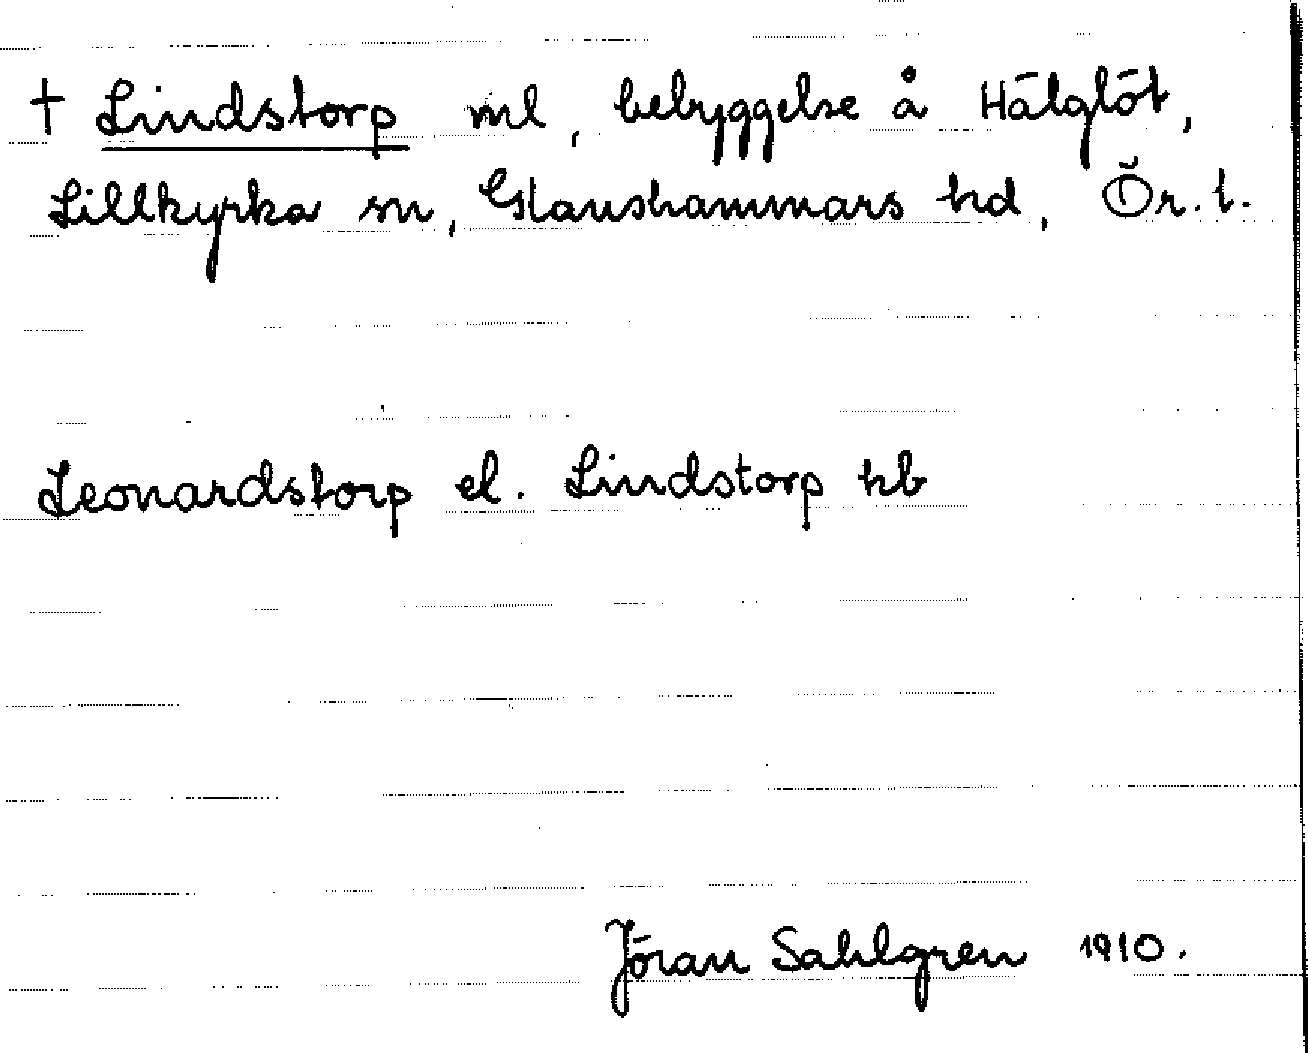 † Lindstorp ml, bebyggelse å Hälglöt,
Lillkyrka sn, Glanshammars hd, Ör. l.
Leonardstorp el. Lindstorp hb
Jöran Sahlgren 1910.